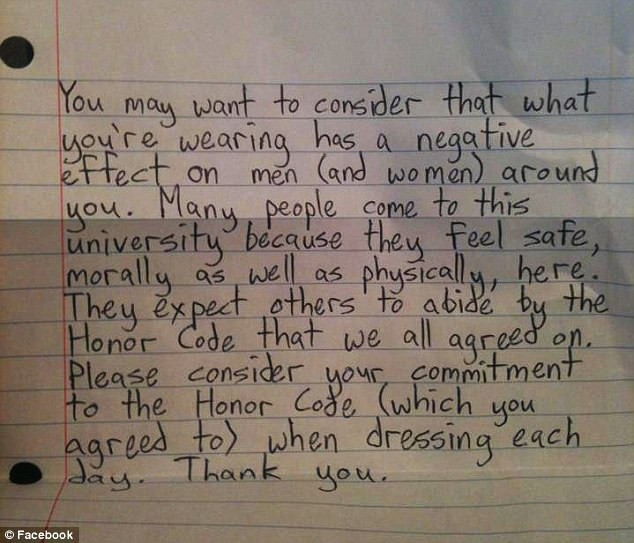 You may want to consider that what
you're wearing has a negative
effect on men (and women) around
you. Many people come to this
university because they feel safe,
morally as well as physically, here.
They expect others to abide by the
Honor Code that we all agreed on.
Please consider your commitment
to the Honor Code (which you
agreed to) when dressing each
day. Thank you.
© Facebook